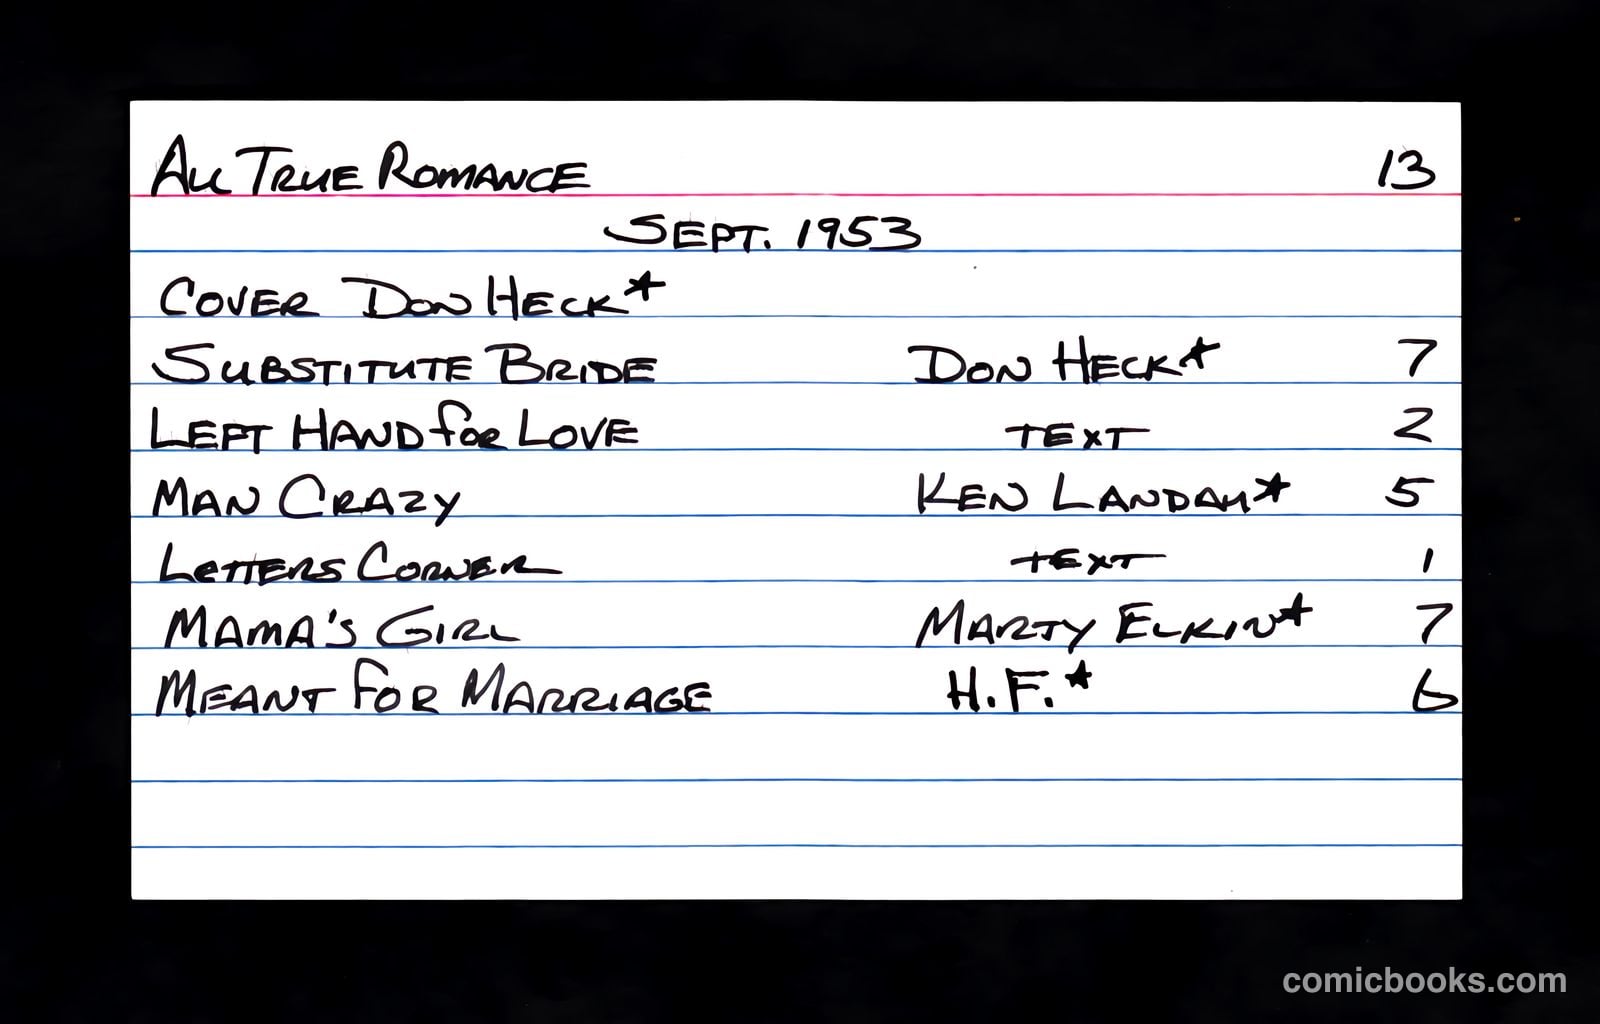 All True Romance 13
Sept. 1953
Cover Don Heck*
Substitute Bride Don Heck* 7
Left Hand for Love text 2
Man Crazy Ken Landau* 5
Letters Corner text 1
Mama's Girl Marty Elkin* 7
Meant for Marriage H.F.* 6
comicbooks.com